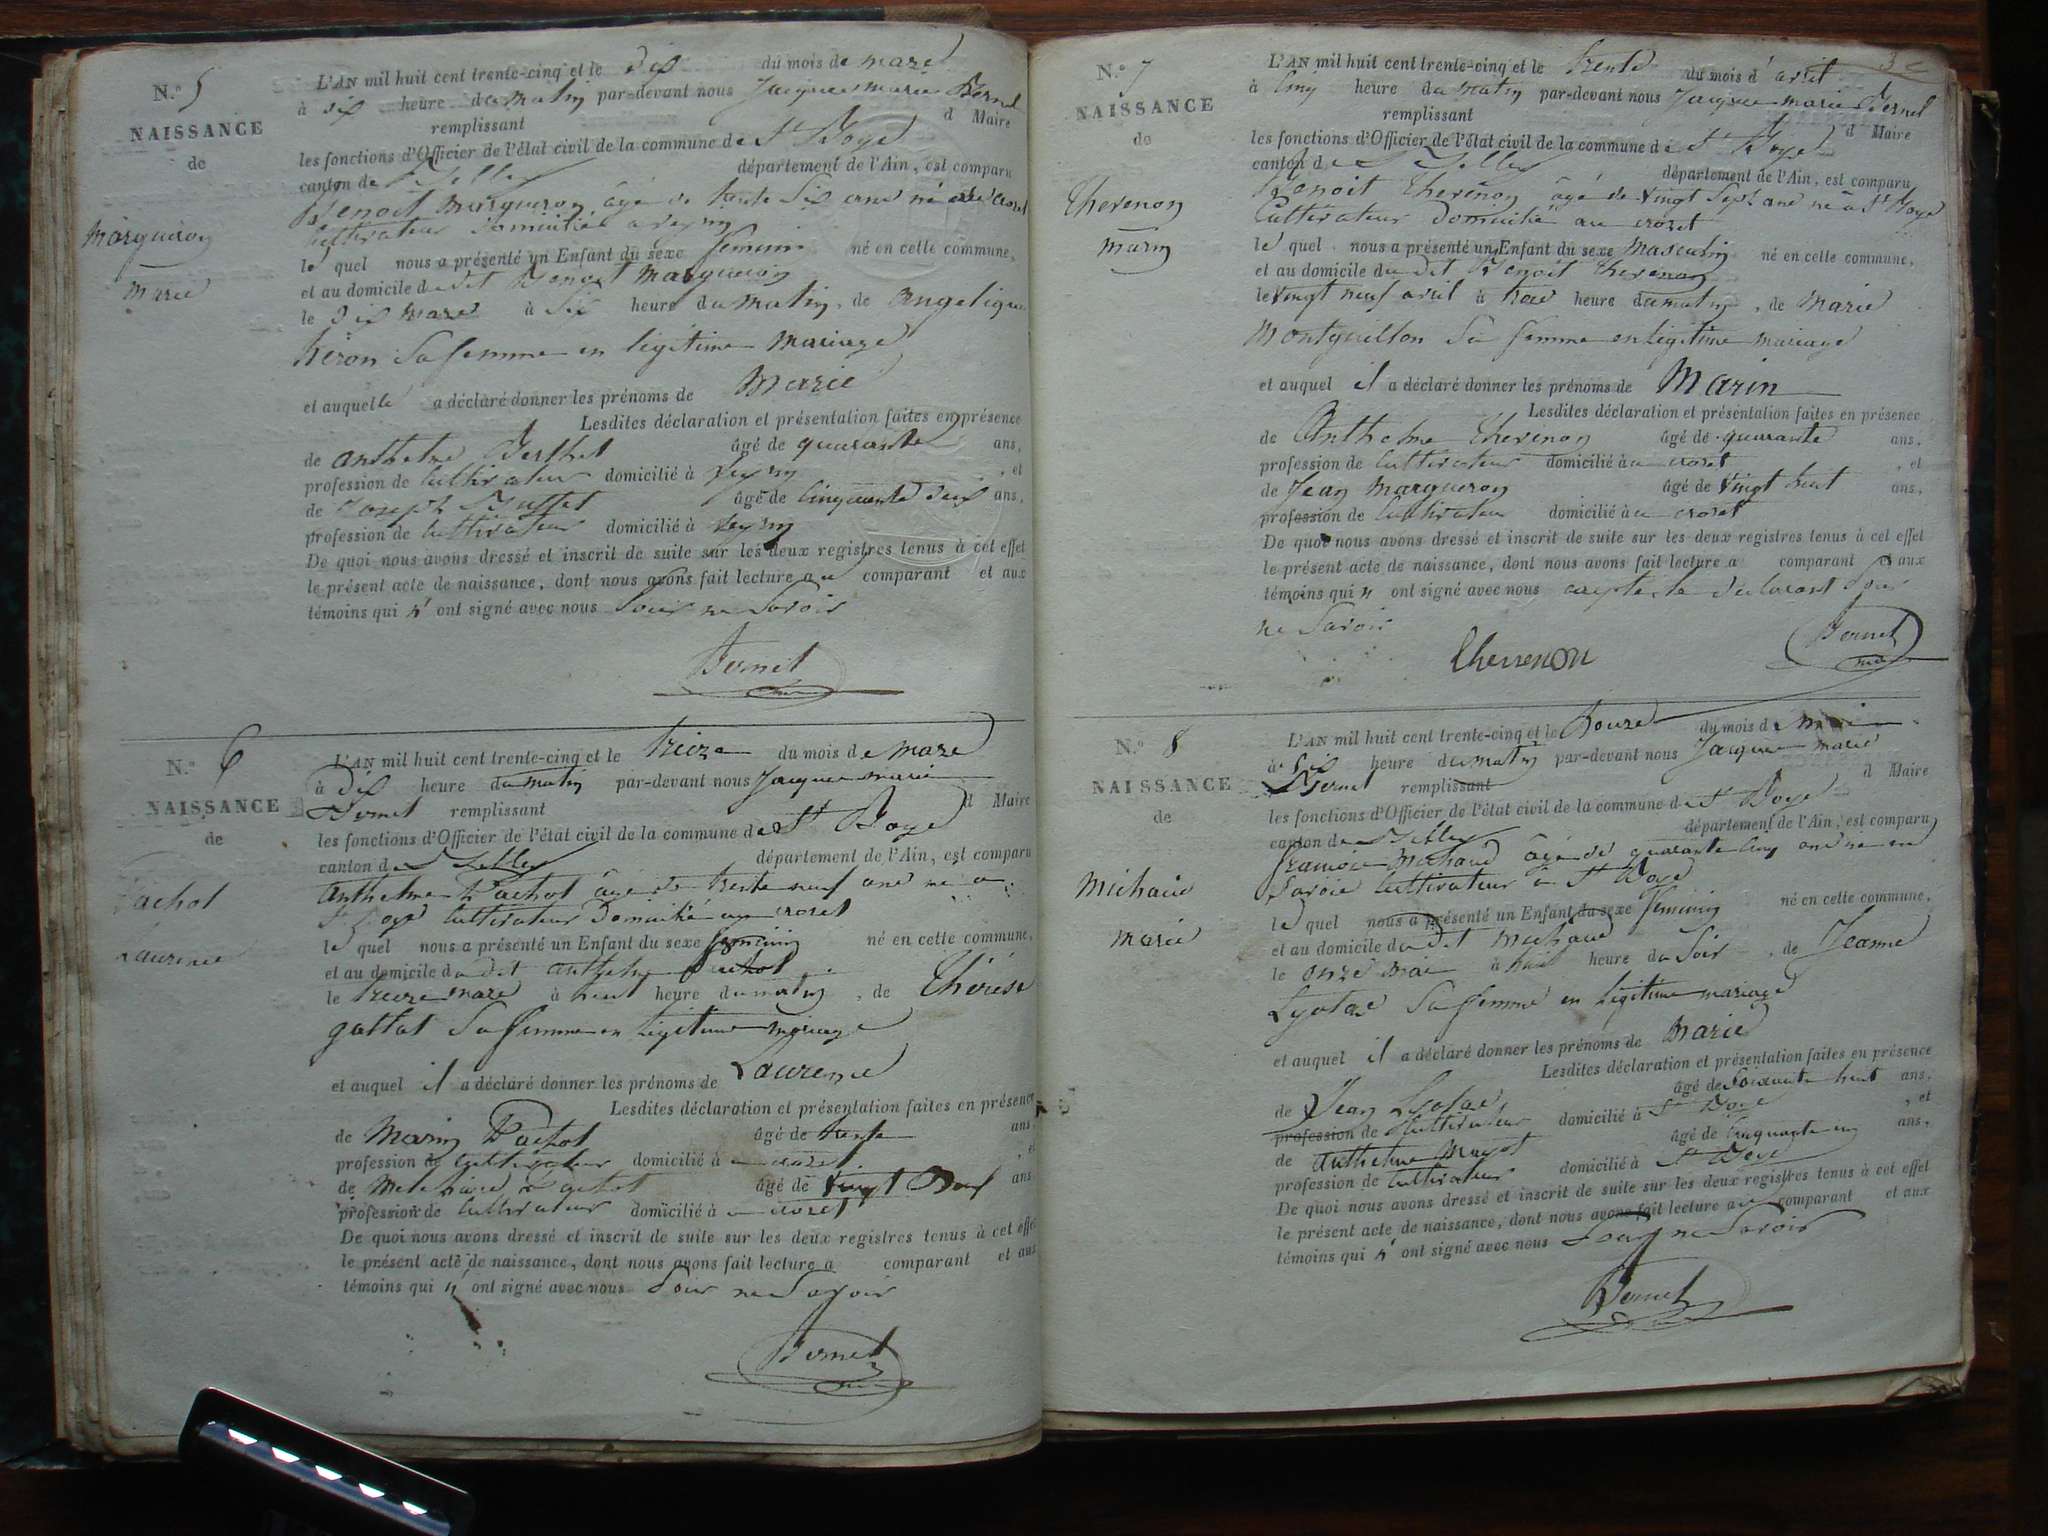 N.° 5
NAISSANCE
de
Marqueron
Marie
L'AN mil huit cent trente-cinq et le dix du mois de mars
à dix heure du matin par-devant nous Jacque marie Bornet
remplissant d Maire
les fonctions d'Officier de l'état civil de la commune de St Boys
canton de département de l'Ain, est comparu
Benoit Marqueron âgé de trente six ans né
Cultivateur domicilié a
le quel nous a présenté un Enfant du sexe feminin né en cette commune,
et au domicile du dit Benoit Marqueron
le dix mars à six heure du matin, de angelique
sa femme en legitime mariage
et auquelle a déclaré donner les prénoms de Marie
Lesdites déclaration et présentation faites en présence
de anthelme Berthet âgé de quarante ans,
profession de Cultivateur domicilié à , et
de Joseph âgé de Cinquante deux ans,
profession de Cultivateur domicilié à
De quoi nous avons dressé et inscrit de suite sur les deux registres tenus à cet effet
le présent acte de naissance, dont nous avons fait lecture au comparant et aux
témoins qui n' ont signé avec nous Pour ne Savoir
Bornet
N.° 6
NAISSANCE
de
Pachot
Laurence
L'AN mil huit cent trente-cinq et le treize du mois de mars
à Dix heure du matin par-devant nous Jacque marie
Bornet remplissant d Maire
les fonctions d'Officier de l'état civil de la commune de St Boys
canton de département de l'Ain, est comparu
anthelme Pachot âgé de trente neuf ans né a
St Boys Cultivateur Domicilié au croset
le quel nous a présenté un Enfant du sexe feminin né en cette commune,
et au domicile du dit anthelme Pachot
le treize mars à huit heure du matin, de Thérèse
gallat Sa femme en Legitime mariage
et auquel il a déclaré donner les prénoms de Laurence
Lesdites déclaration et présentation faites en présence
de Marin Pachot âgé de trente ans,
profession de cultivateur domicilié à u croset, et
de Pachot âgé de Vingt ans
profession de Cultivateur domicilié à u croset
De quoi nous avons dressé et inscrit de suite sur les deux registres tenus à cet effet
le présent acte de naissance, dont nous avons fait lecture a comparant et aux
témoins qui n' ont signé avec nous Pour ne Savoir
Bornet
N.° 7
NAISSANCE
de
Thevenon
Marin
L'AN mil huit cent trente-cinq et le trente du mois d' avril
à Cinq heure du matin par-devant nous Jacque marie Bornet
remplissant d Maire
les fonctions d'Officier de l'état civil de la commune de St Boys
canton de département de l'Ain, est comparu
Benoit Thevenon âgé de vingt Sept ans né à St Boys
Cultivateur Domicilié au croset
le quel nous a présenté un Enfant du sexe Masculin né en cette commune,
et au domicile du dit Benoit Thevenon
le vingt neuf avril à trois heure du matin, de Marie
Montguellon Sa femme en Legitime mariage
et auquel il a déclaré donner les prénoms de Marin
Lesdites déclaration et présentation faites en présence
de Anthelme Thevenon âgé de quarante ans,
profession de Cultivateur domicilié à u croset, et
de Jean Marqueron âgé de Vingt huit ans,
profession de Cultivateur domicilié à u croset
De quoi nous avons dressé et inscrit de suite sur les deux registres tenus à cet effet
le présent acte de naissance, dont nous avons fait lecture a comparant et aux
témoins qui n ont signé avec nous Pour
ne Savoir
Thevenon
Bornet
N.° 8
NAISSANCE
de
Michaud
Marie
L'AN mil huit cent trente-cinq et le Douze du mois de mai
à Six heure du matin par-devant nous Jacque marie
Bornet remplissant d Maire
les fonctions d'Officier de l'état civil de la commune de St Boys
canton de département de l'Ain, est comparu
francois Michaud âgé de quarante Cinq ans né en
Savoie Cultivateur a St Boys
le quel nous a présenté un Enfant du sexe feminin né en cette commune,
et au domicile du dit Michaud
le onze mai à huit heure du Soir, de Jeanne
Sa femme en Legitime mariage
et auquel il a déclaré donner les prénoms de Marie
Lesdites déclaration et présentation faites en présence
de Jean âgé de Soixante huit ans,
profession de Cultivateur domicilié à St Boys, et
de anthelme âgé de Cinquante ans,
profession de Cultivateur domicilié à St Boys
De quoi nous avons dressé et inscrit de suite sur les deux registres tenus à cet effet
le présent acte de naissance, dont nous avons fait lecture au comparant et aux
témoins qui n' ont signé avec nous Pour ne Savoir
Bornet